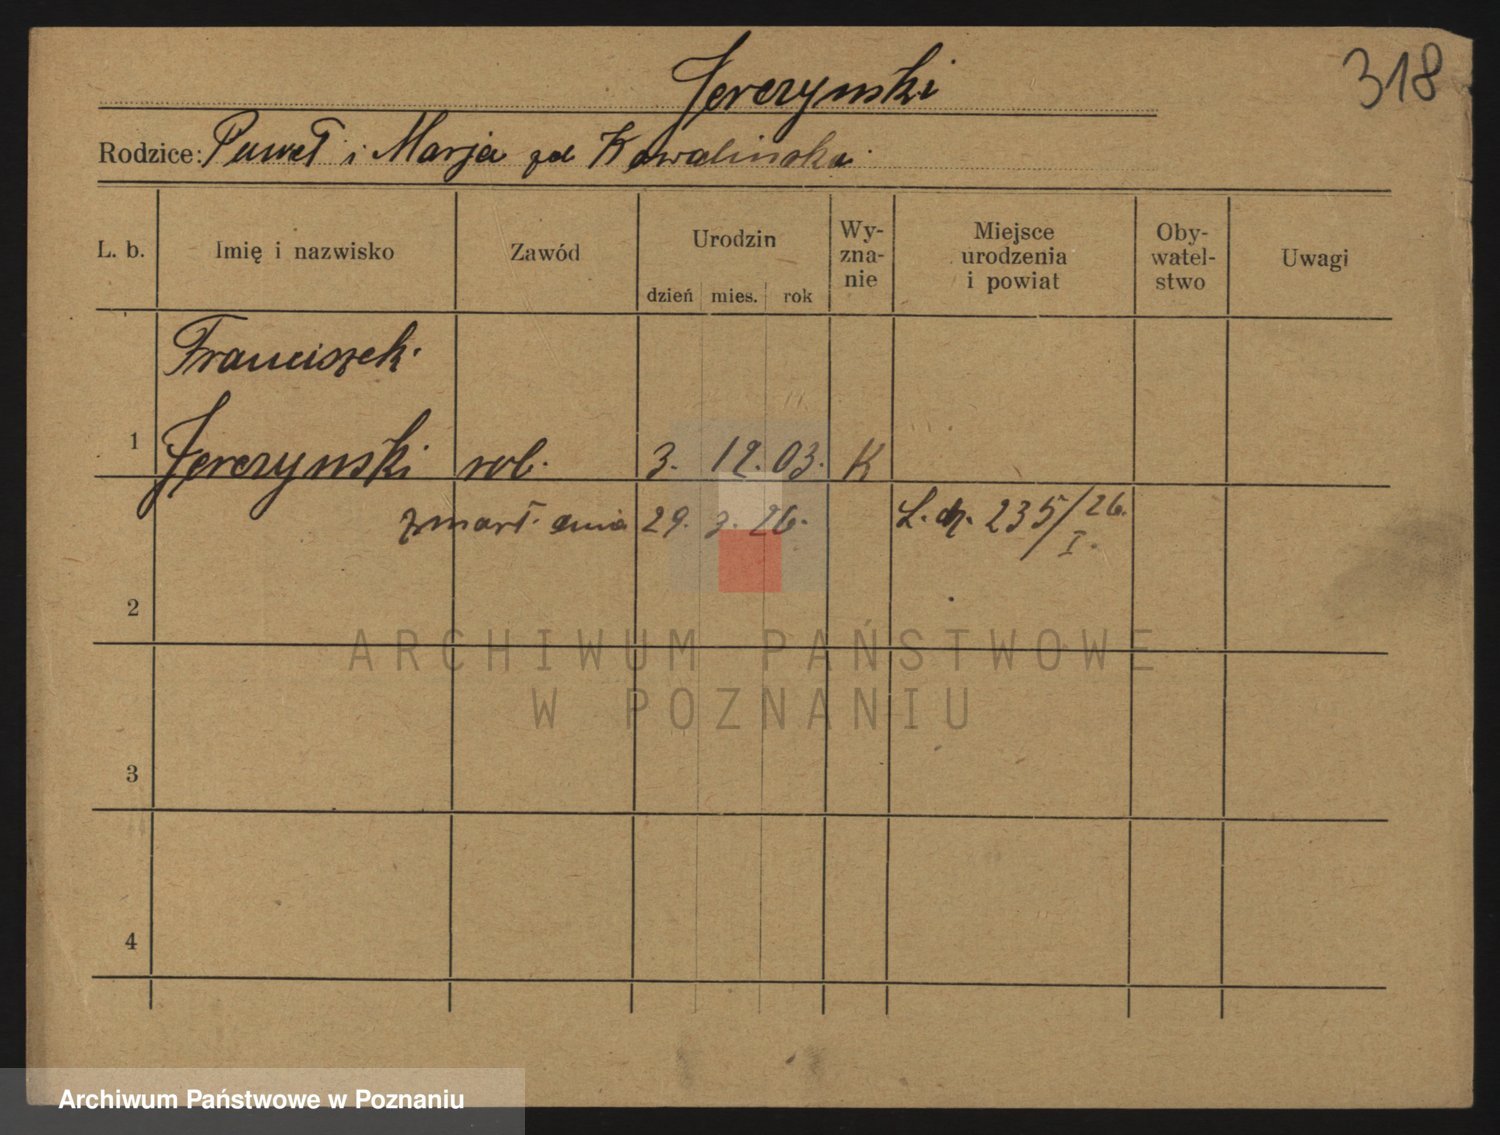 318
Jerczynski
Rodzice: Paweł i Marja zd Kowalińska
L. b. Imię i nazwisko Zawód Urodzin dzień mies. rok Wy-zna-nie Miejsce urodzenia i powiat Oby-watel-stwo Uwagi
Franciszek
1 Jerczynski rob. 3. 12. 03. K
zmarł. dnia 29. 3. 26. L. dz. 235/26.
I.
2
ARCHIWUM PAŃSTWOWE
W POZNANIU
3
4
Archiwum Państwowe w Poznaniu